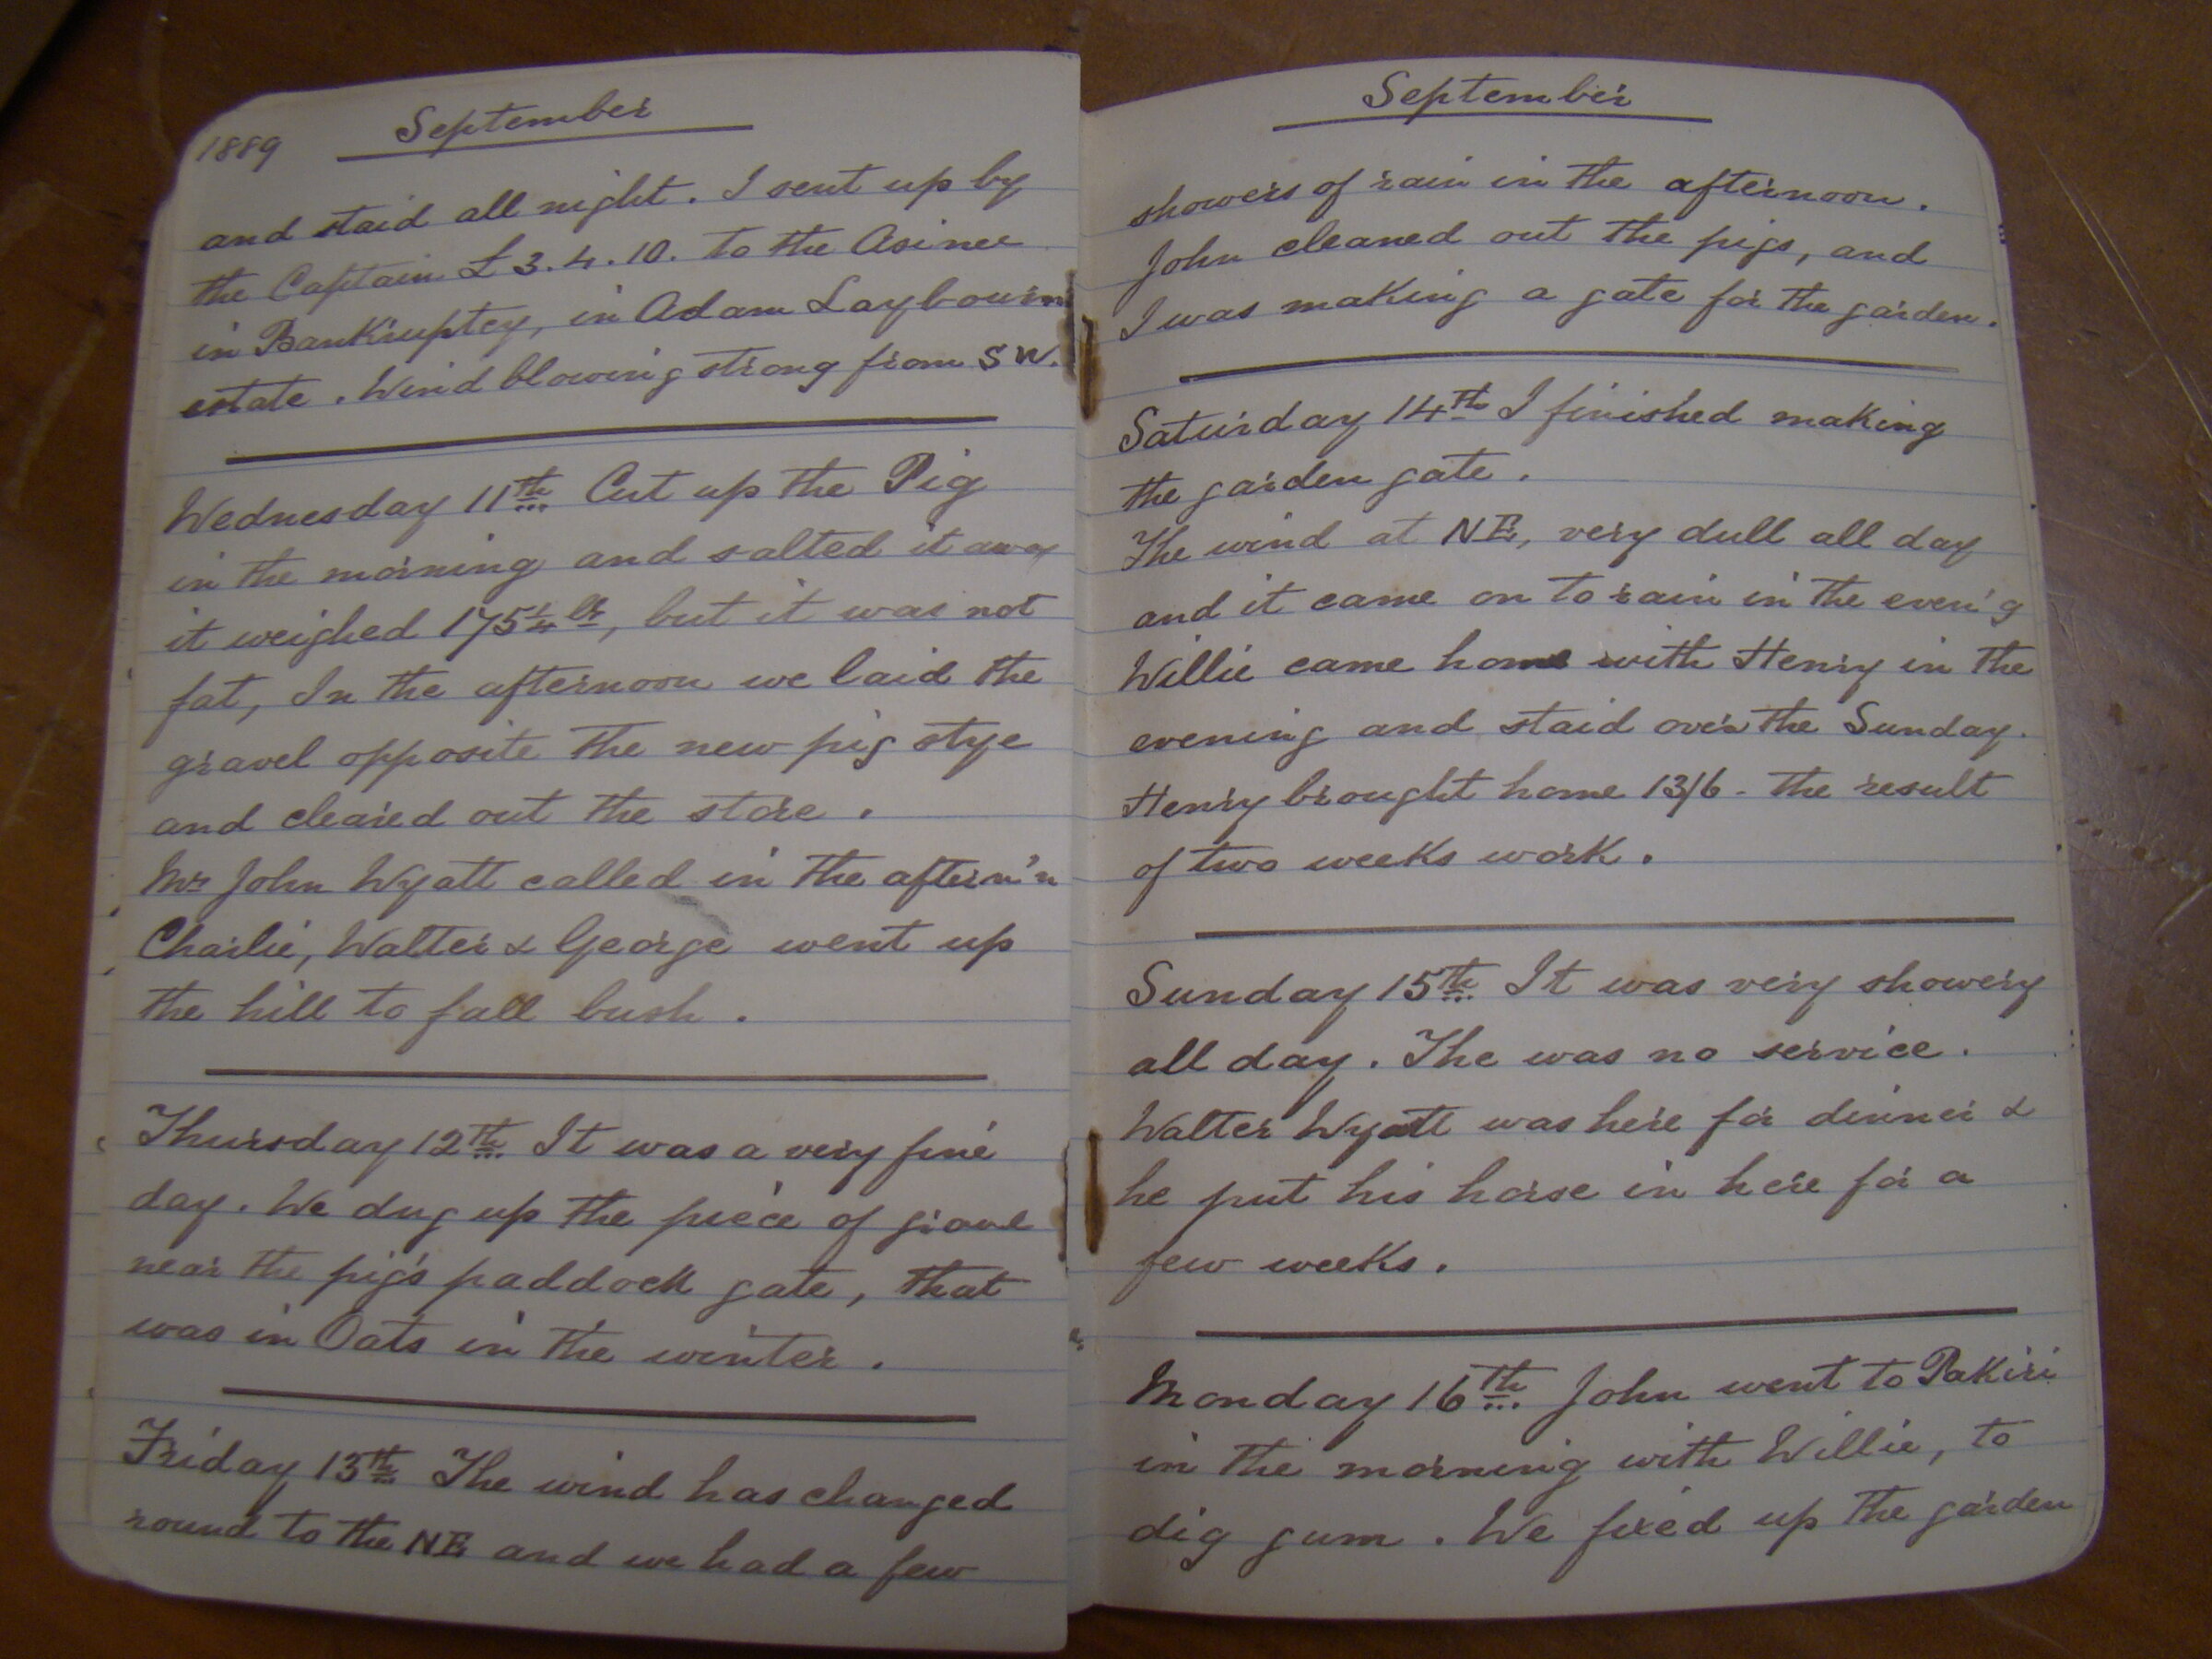 1889 September
and staid all night. I sent up by
the Captain £3.4.10. to the Asinee
in Bankruptcy, in Adam Laybourn
estate. Wind blowing strong from SW.
Wednesday 11th Cut up the Pig
in the morning and salted it away
it weighed 175¼ lb, but it was not
fat, In the afternoon we laid the
gravel opposite the new pig stye
and cleared out the store.
Mr John Wyatt called in the aftern'n
Charlie, Walter & George went up
the hill to fall bush.
Thursday 12th It was a very fine
day. We dug up the piece of
near the pig's paddock gate, that
was in Oats in the winter.
Friday 13th The wind has changed
round to the NE and we had a few
September
showers of rain in the afternoon.
John cleaned out the pigs, and
I was making a gate for the garden.
Saturday 14th I finished making
the garden gate.
The wind at NE, very dull all day
and it came on to rain in the even'g
Willie came home with Henry in the
evening and staid over the Sunday.
Henry brought home 13/6 - the result
of two weeks work.
Sunday 15th It was very showery
all day. The was no service.
Walter Wyatt was here for dinner &
he put his horse in here for a
few weeks.
Monday 16th John went to Pakiri
in the morning with Willie, to
dig gum. We fixed up the garden